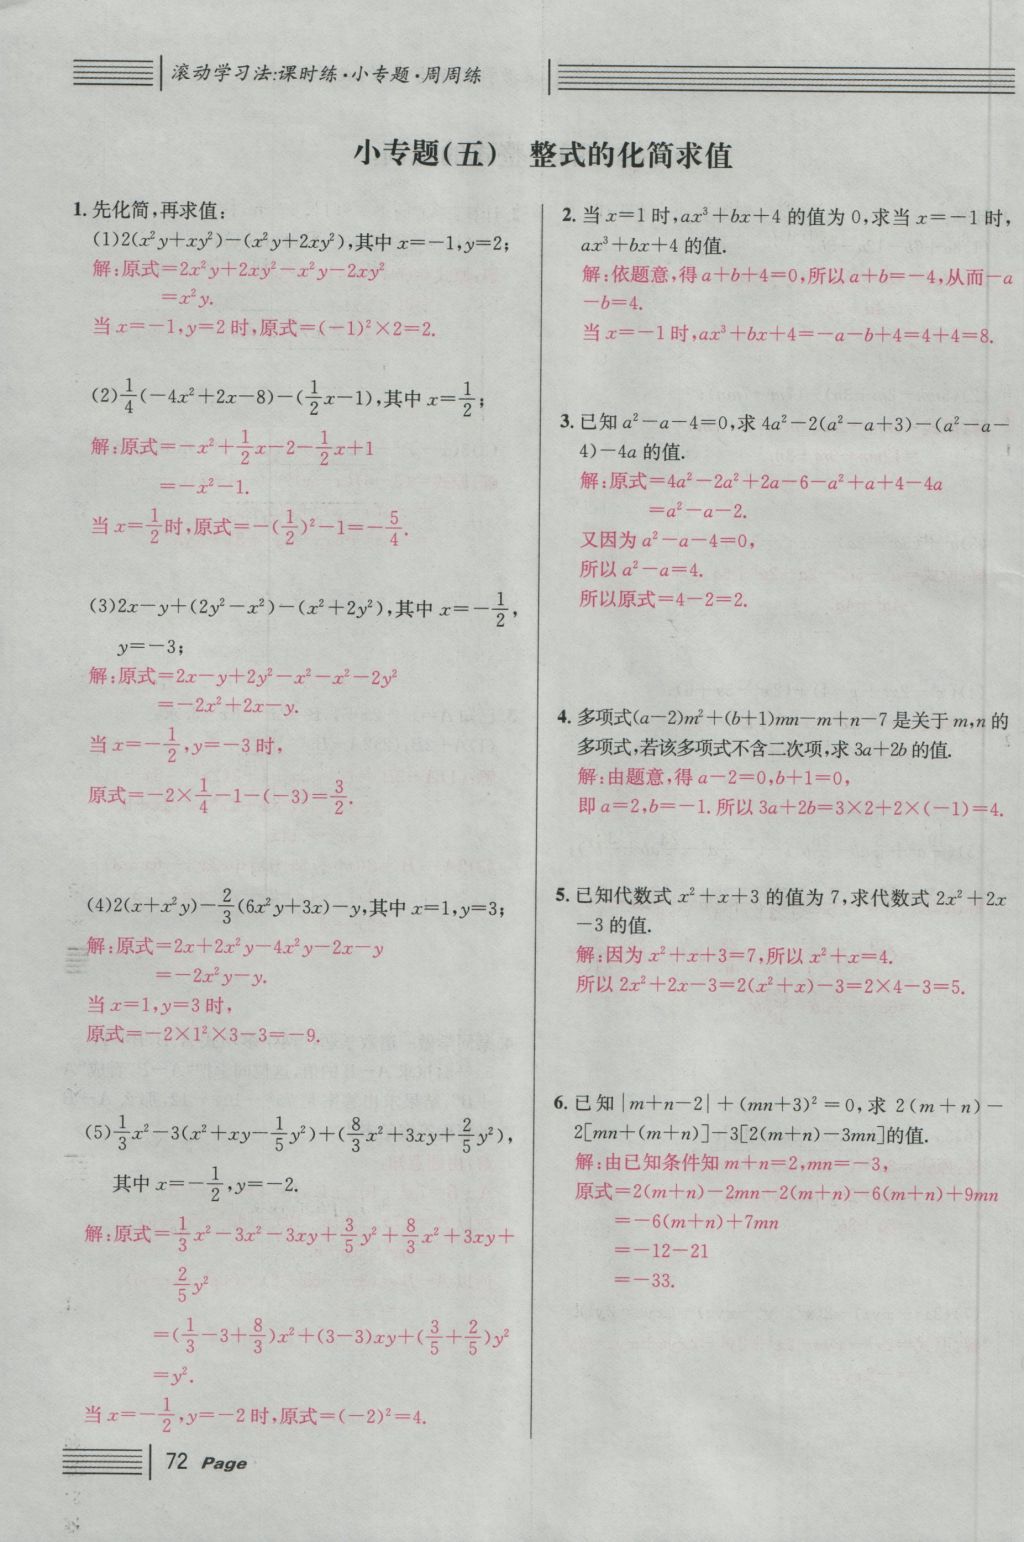 滚动学习法:课时练·小专题·周周练
小专题(五) 整式的化简求值
1. 先化简,再求值:
(1)2(x²y+xy²)-(x²y+2xy²),其中 x=-1,y=2;
解:原式=2x²y+2xy²-x²y-2xy²
=x²y.
当 x=-1,y=2 时,原式=(-1)²×2=2.
(2)1/4(-4x²+2x-8)-(1/2x-1),其中 x=1/2;
解:原式=-x²+1/2x-2-1/2x+1
=-x²-1.
当 x=1/2时,原式=-(1/2)²-1=-5/4.
(3)2x-y+(2y²-x²)-(x²+2y²),其中 x=-1/2,
y=-3;
解:原式=2x-y+2y²-x²-x²-2y²
=-2x²+2x-y.
当 x=-1/2,y=-3 时,
原式=-2×1/4-1-(-3)=3/2.
(4)2(x+x²y)-2/3(6x²y+3x)-y,其中 x=1,y=3;
解:原式=2x+2x²y-4x²y-2x-y
=-2x²y-y.
当 x=1,y=3 时,
原式=-2×1²×3-3=-9.
(5)1/3x²-3(x²+xy-1/5y²)+(8/3x²+3xy+2/5y²),
其中 x=-1/2,y=-2.
解:原式=1/3x²-3x²-3xy+3/5y²+8/3x²+3xy+
2/5y²
=(1/3-3+8/3)x²+(3-3)xy+(3/5+2/5)y²
=y².
当 x=-1/2,y=-2 时,原式=(-2)²=4.
2. 当 x=1 时,ax³+bx+4 的值为 0,求当 x=-1 时,
ax³+bx+4 的值.
解:依题意,得 a+b+4=0,所以 a+b=-4,从而-a
-b=4.
当 x=-1 时,ax³+bx+4=-a-b+4=4+4=8.
3. 已知 a²-a-4=0,求 4a²-2(a²-a+3)-(a²-a-
4)-4a 的值.
解:原式=4a²-2a²+2a-6-a²+a+4-4a
=a²-a-2.
又因为 a²-a-4=0,
所以 a²-a=4.
所以原式=4-2=2.
4. 多项式(a-2)m²+(b+1)mn-m+n-7 是关于 m,n 的
多项式,若该多项式不含二次项,求 3a+2b 的值.
解:由题意,得 a-2=0,b+1=0,
即 a=2,b=-1. 所以 3a+2b=3×2+2×(-1)=4.
5. 已知代数式 x²+x+3 的值为 7,求代数式 2x²+2x
-3 的值.
解:因为 x²+x+3=7,所以 x²+x=4.
所以 2x²+2x-3=2(x²+x)-3=2×4-3=5.
6. 已知|m+n-2|+(mn+3)²=0,求 2(m+n)-
2[mn+(m+n)]-3[2(m+n)-3mn]的值.
解:由已知条件知 m+n=2,mn=-3,
原式=2(m+n)-2mn-2(m+n)-6(m+n)+9mn
=-6(m+n)+7mn
=-12-21
=-33.
72 Page